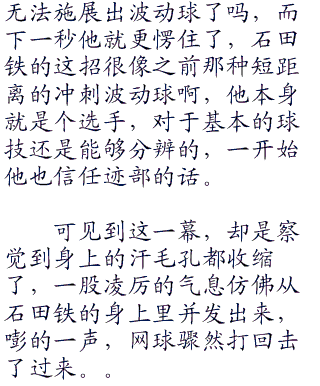 无法施展出波动球了吗，而
下一秒他就更愣住了，石田
铁的这招很像之前那种短距
离的冲刺波动球啊，他本身
就是个选手，对于基本的球
技还是能够分辨的，一开始
他也信任迹部的话。
可见到这一幕，却是察
觉到身上的汗毛孔都收缩
了，一股凌厉的气息仿佛从
石田铁的身上里并发出来，
嘭的一声，网球骤然打回击
了过来。。